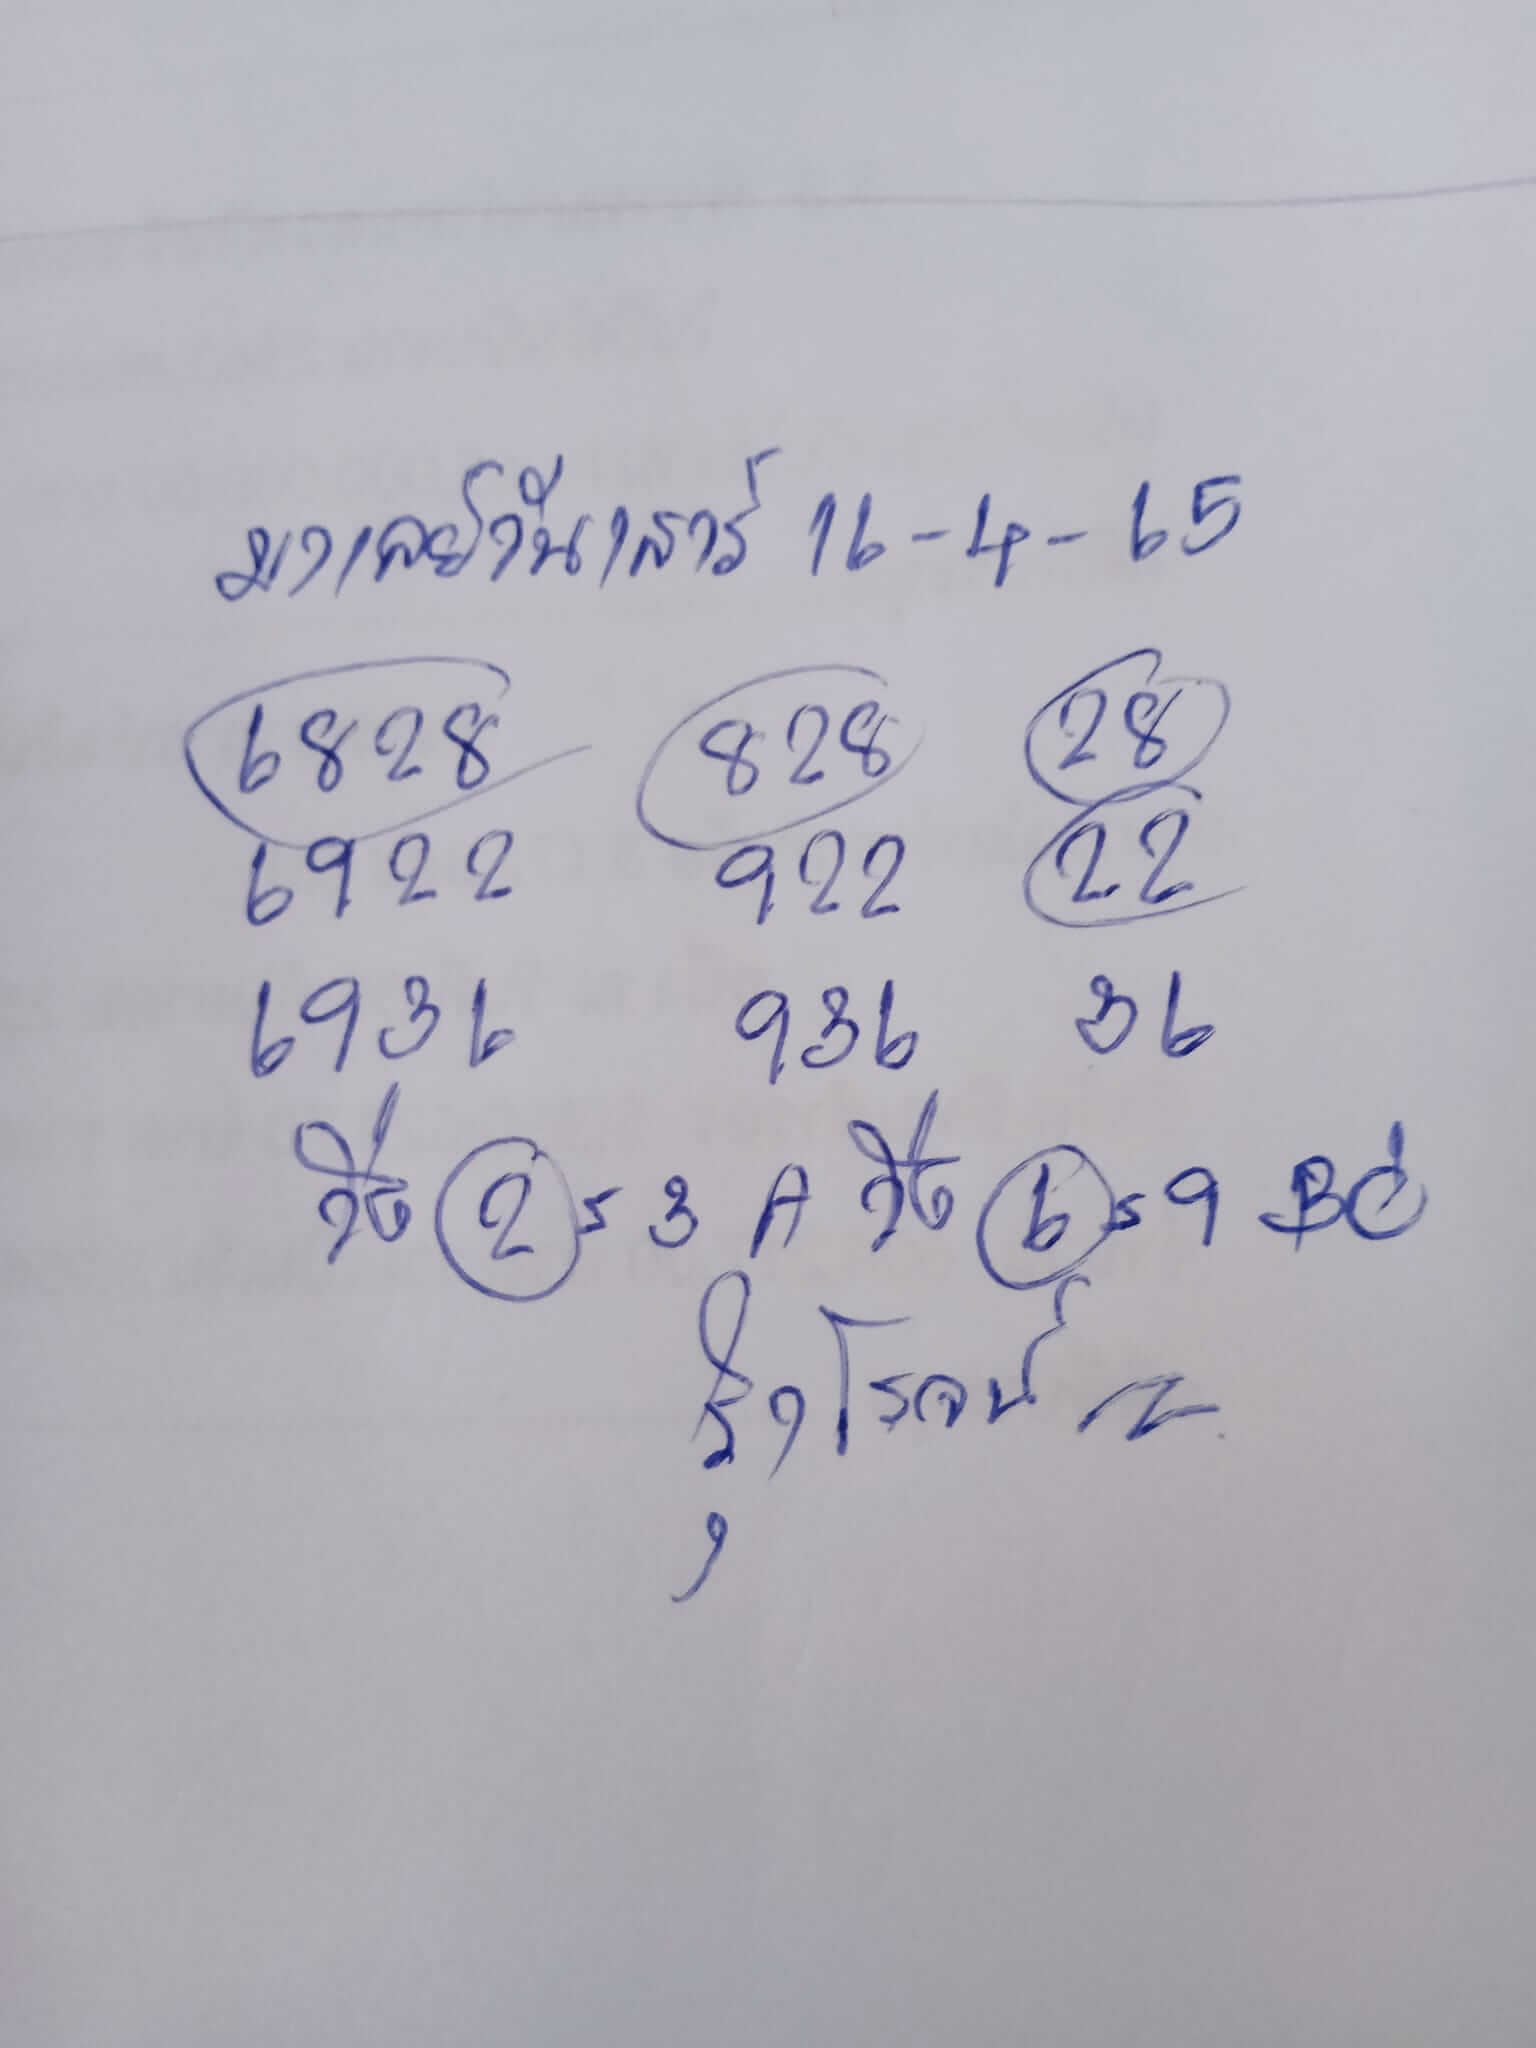 มาเลย์วันเสาร์ 16-4-65
6828 828 28
6922 922 22
6936 936 36
วิ่ง 2 ร 3 A วิ่ง 6 ร 9
โรจน์